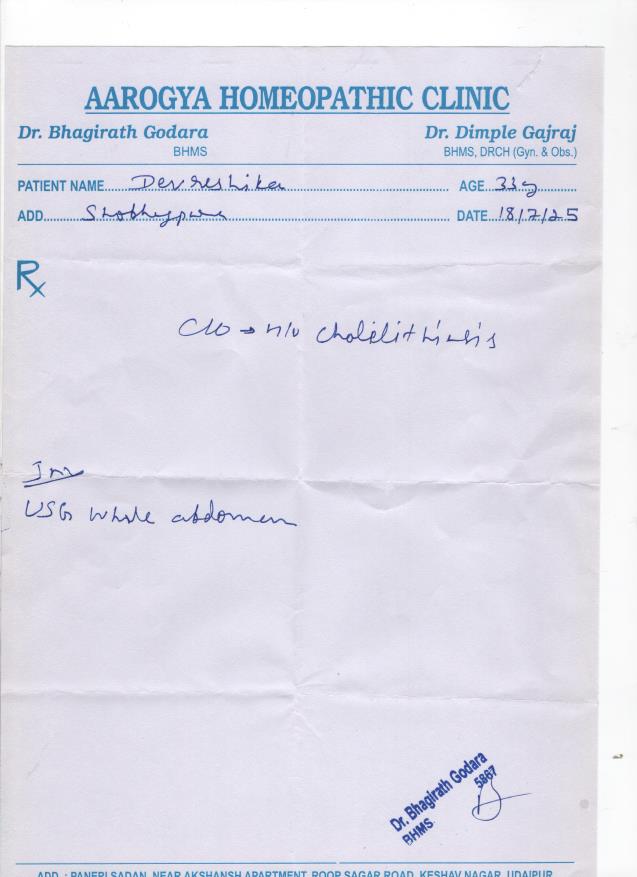 AAROGYA HOMEOPATHIC CLINIC
Dr. Bhagirath Godara Dr. Dimple Gajraj
BHMS BHMS, DRCH (Gyn. & Obs.)
PATIENT NAME AGE 33y
ADD DATE 18/7/25
Rx
C/O → H/O Cholelithiasis
Inv
USG whole abdomen
Dr. Bhagirath Godara
5867
BHMS
ADD. : PANERI SADAN, NEAR AKSHANSH APARTMENT, ROOP SAGAR ROAD, KESHAV NAGAR, UDAIPUR